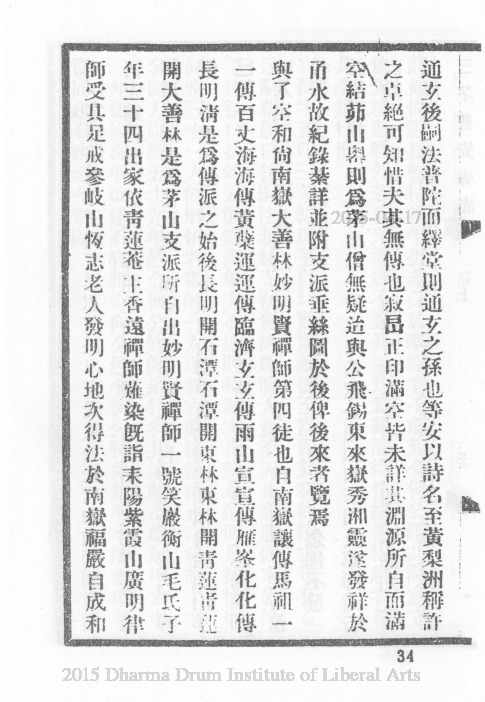 通玄後嗣法普陀而繹堂則通玄之孫也等安以詩名至黃梨洲稱許
之卓絶可知惜夫其無傳也寂嵒正印滿空皆未詳其淵源所自而滿
空結茆山輿則為茅山僧無疑迨與公飛錫東來嶽秀湘靈遂發祥於
甬水故紀錄綦詳並附支派垂絲圖於後俾後來者覽焉
與了空和尙南嶽大善林妙明賢禪師第四徒也自南嶽讓傳馬祖一
一傳百丈海海傳黃檗運運傳臨濟玄玄傳雨山宣宣傳雁峯化化傳
長明淸是爲傳派之始後長明開石潭石潭開東林東林開靑蓮靑蓮
開大善林是爲茅山支派所自出妙明賢禪師一號笑巖衡山毛氏子
年三十四出家依靑蓮菴主香遠禪師薙染旣詣耒陽紫霞山廣明律
師受具足戒參岐山恆志老人發明心地次得法於南嶽福嚴自成和
34
2015 Dharma Drum Institute of Liberal Arts